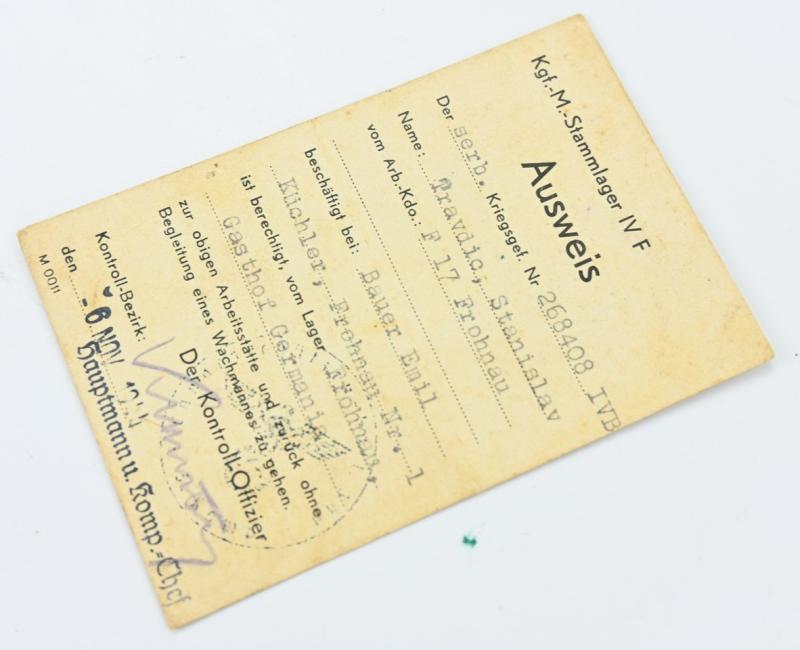 Kgf.-M.-Stammlager IV F
Ausweis
Der serb. Kriegsgef. Nr 268408 IVB
Name: Travdic, Stanislav
vom Arb.-Kdo.: F 17 Frohnau
beschäftigt bei: Bauer Emil
Küchler, Frohnau Nr. 1
ist berechtigt, vom Lager Frohnau,
Gasthof Germania
zur obigen Arbeitsstätte und zurück ohne
Begleitung eines Wachmannes zu gehen.
Kontroll-Bezirk: Der Kontroll-Offizier
den -6 NOV. 1944
Hauptmann u. Komp.=Chef
M 0011